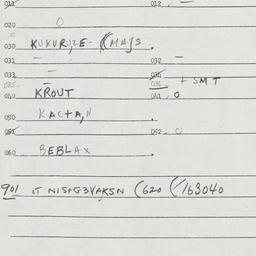 011 — 012 —
020 O
030 KUKURUZE- (MAJS .
031 — 032 —
033 — 034
035 036 + SMT
040 KROUT 041 . O
050 KACTA,N .
051 052 . O
060 BEBLAX .
901 IT NIS+G3VAKSN (620 (/163040